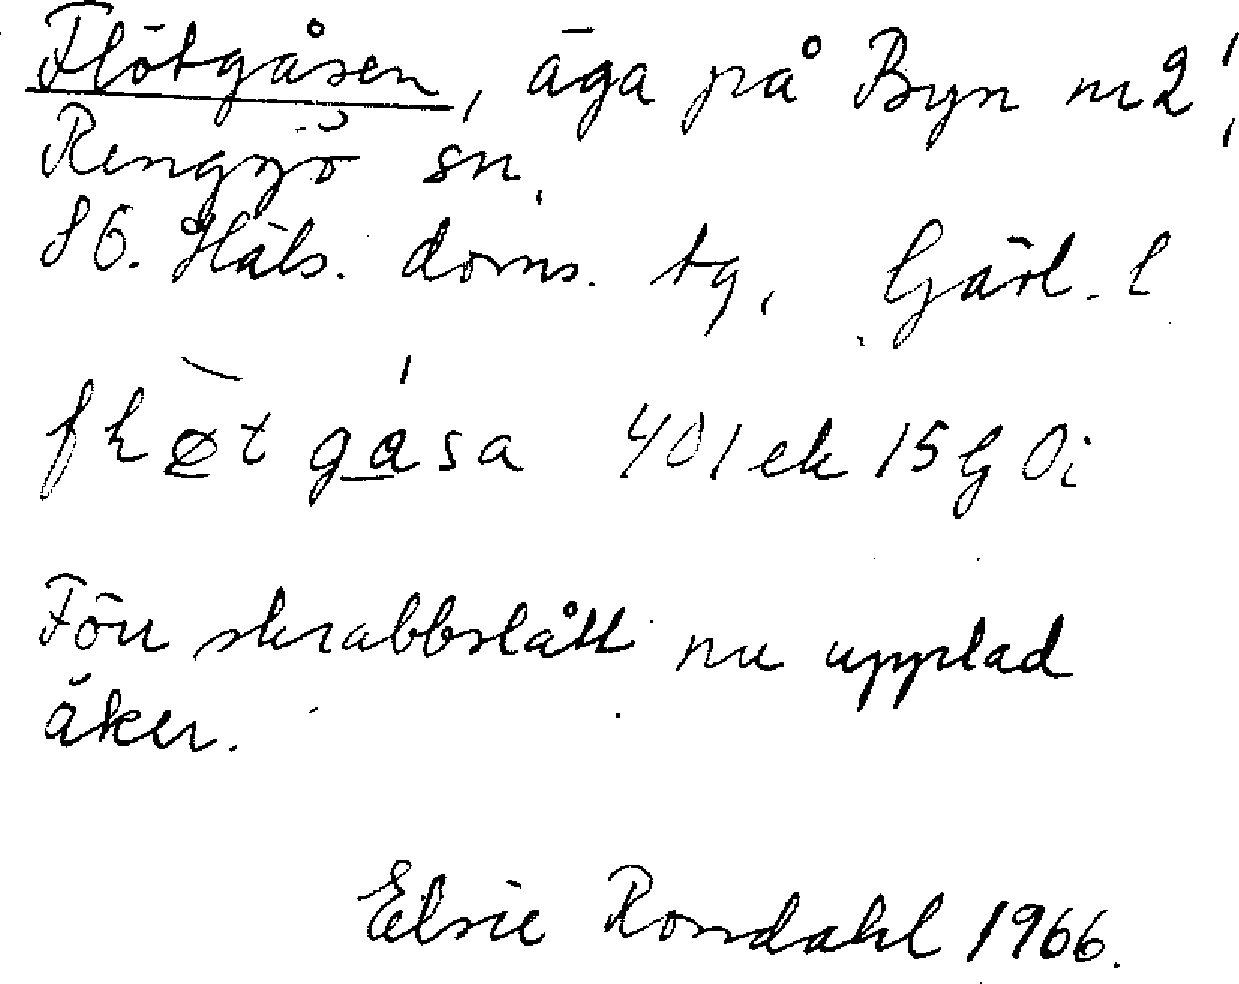 Flötgåsen, äga på Byn nr 2,
Rengsjö sn,
S G. Häls. doms. tg, Gävl. l
401 ek 15 G 0i
Förr skrabbslått nu upplad
åker.
Elsie Rondahl 1966.